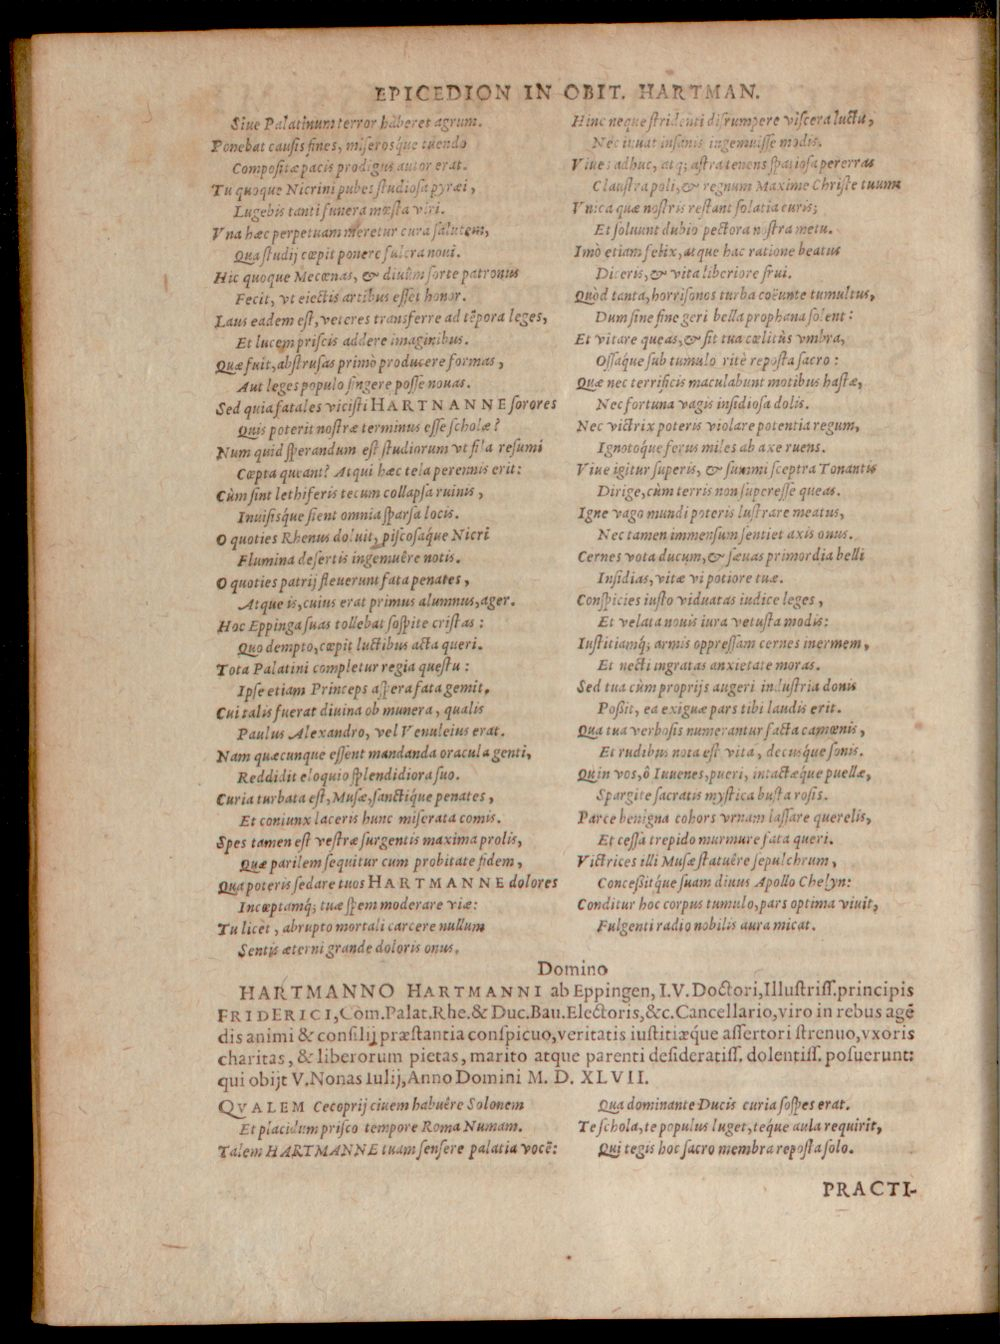 EPICEDION IN OBIT. HARTMAN.
Siue Palatinum terror haberet agrum.
Ponebat causis fines, miserosq́ue tuendo
Compositæ pacis prodigus autor erat.
Tu quoque Nicrini pubes studiosa pyræi,
Lugebis tanti funera mœsta viri.
Vna hæc perpetuam meretur cura salutem,
Qua studij cœpit ponere fulcra noui.
Hic quoque Mecœnas, & diuûm sorte patronus
Fecit, vt eiectis artibus esset honor.
Laus eadem est, veteres transferre ad tēpora leges,
Et lucem priscis addere imaginibus.
Quæ fuit, abstrusas primò producere formas,
Aut leges populo fingere posse nouas.
Sed quia fatales vicisti HARTNANNE sorores
Quis poterit nostræ terminus esse scholæ?
Num quid sperandum est studiorum vt fila resumi
Cœpta queant? Atqui hæc tela perennis erit:
Cùm sint lethiferis tecum collapsa ruinis,
Inuisisq́ue fient omnia sparsa locis.
O quoties Rhenus doluit, piscosaq́ue Nicri
Flumina desertis ingemuêre notis.
O quoties patrij fleuerunt fata penates,
Atque is, cuius erat primus alumnus, ager.
Hoc Eppinga suas tollebat sospite cristas:
Quo dempto, cœpit luctibus acta queri.
Tota Palatini completur regia questu:
Ipse etiam Princeps aspera fata gemit.
Cui talis fuerat diuina ob munera, qualis
Paulus Alexandro, vel Venuleius erat.
Nam quæcunque essent mandanda oracula genti,
Reddidit eloquio splendidiora suo.
Curia turbata est, Musæ, sanctiq́ue penates,
Et coniunx laceris hunc miserata comis.
Spes tamen est vestræ surgentis maxima prolis,
Quæ parilem sequitur cum probitate fidem,
Qua poteris sedare tuos HARTMANNE dolores
Incœptamq; tuæ spem moderare viæ:
Tu licèt, abrupto mortali carcere nullum
Sentis æterni grande doloris onus.
Hinc neque stridenti disrumpere viscera luctu,
Nec iuuat insanis ingemuisse modis.
Viue: adhuc, atq; astra tenens spatiosa pererras
Claustra poli, & regnum Maxime Christe tuum
Vnica quæ nostris restant solatia curis;
Et soluunt dubio pectora nostra metu.
Imò etiam felix, atque hac ratione beatus
Diceris, & vita liberiore frui.
Quòd tanta, horrisonos turba coëunte tumultus,
Dum sine fine geri bella prophana solent:
Et vitare queas, & sit tua cœlitùs vmbra,
Ossaq́ue sub tumulo ritè reposta sacro:
Quæ nec terrificis maculabunt motibus hastæ,
Nec fortuna vagis insidiosa dolis.
Nec victrix poteris violare potentia regum,
Ignotoque ferus miles ab axe ruens.
Viue igitur superis, & summi sceptra Tonantis
Dirige, cùm terris non superesse queas.
Igne vago mundi poteris lustrare meatus,
Nec tamen immensum sentiet axis onus.
Cernes vota ducum, & sæuas primordia belli
Insidias, vitæ vi potiore tuæ.
Conspicies iusto viduatas iudice leges,
Et velata nouis iura vetusta modis:
Iustitiamq; armis oppressam cernes inermem,
Et necti ingratas anxietate moras.
Sed tua cùm proprijs augeri industria donis
Poßit, ea exiguæ pars tibi laudis erit.
Qua tua verbosis numerantur facta camœnis,
Et rudibus nota est vita, decusque sonis.
Quin vos, ô Iuuenes, pueri, intactæque puellæ,
Spargite sacratis mystica busta rosis.
Parce benigna cohors vrnam lassare querelis,
Et cessa trepido murmure fata queri.
Victrices illi Musæ statuêre sepulchrum,
Conceßitq́ue suam diuus Apollo Chelyn:
Conditur hoc corpus tumulo, pars optima viuit,
Fulgenti radio nobilis aura micat.
Domino
HARTMANNO HARTMANNI ab Eppingen, I.V. Doctori, Illustriss. principis
FRIDERICI, Com. Palat. Rhe. & Duc. Bau. Electoris, &c. Cancellario, viro in rebus agē
dis animi & consilij præstantia conspicuo, veritatis iustitiæque assertori strenuo, vxoris
charitas, & liberorum pietas, marito atque parenti desideratiss. dolentiss. posuerunt:
qui obijt V. Nonas Iulij, Anno Domini M. D. XLVII.
QVALEM Cecoprij ciuem habuêre Solonem
Et placidum prisco tempore Roma Numam.
Talem HARTMANNE tuam sensere palatia vocē:
Qua dominante Ducis curia sospes erat.
Te schola, te populus luget, teq́ue aula requirit,
Qui tegis hoc sacro membra reposta solo.
PRACTI-